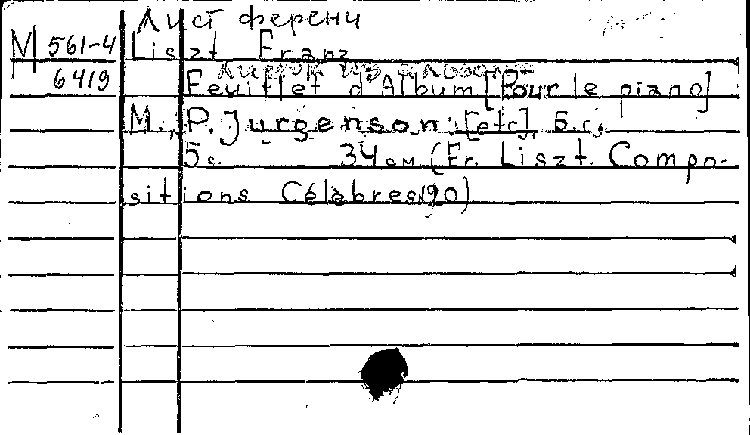 Лист Ференц
М 561-4 Liszt Franz
6419 Листок из альбома
Feuillet d'Album [Pour le piano]
М., P. Jurgenson [etc], б.г.
5 с. 34 см (Fr. Liszt. Compo-
sitions Célèbres 20)